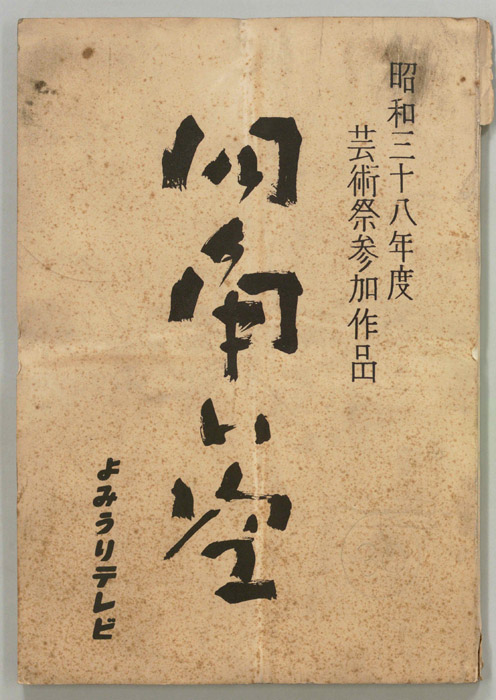 昭和三十八年度
芸術祭参加作品
四角い空
よみうりテレビ